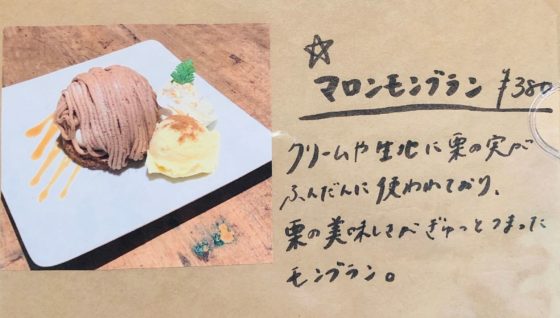 ☆
マロンモンブラン ¥380
クリームや生地に栗の実が
ふんだんに使われており、
栗の美味しさがぎゅっとつまった
モンブラン。